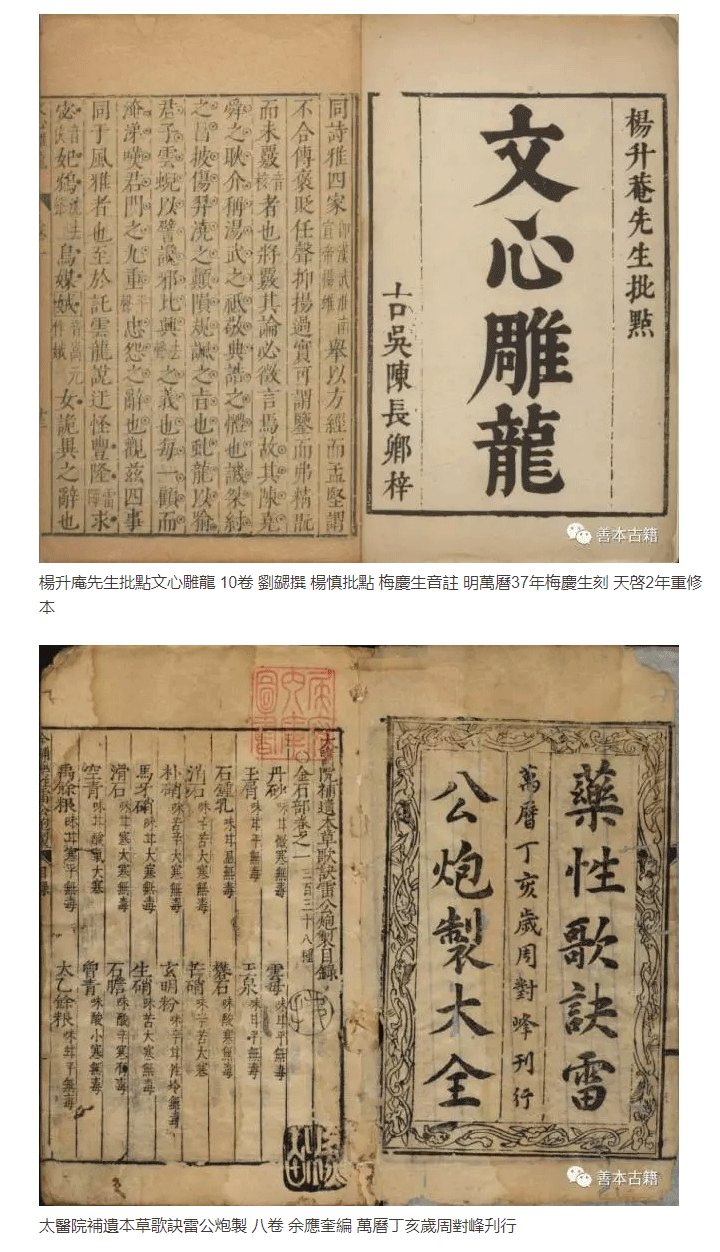 楊升菴先生批點
文心雕龍
古吳陳長卿梓
同詩雅四家
舉以方經而孟堅謂
不合傳褒貶任聲抑揚過實可謂鑒而弗精翫
而未覈音核者也將覈其論必徵言焉故其陳堯
舜之耿介稱湯武之祗敬典誥之體也譏桀紂
之昌披傷羿澆之顛隕規諷之旨也虬龍以喻
君子雲蜺以譬讒邪比興之義也每一顧而
淹涕嘆君門之九重忠怨之辭也觀茲四事
同于風雅者也至於託雲龍說迂怪豐隆求
宓妃鴆鳥媒娀女詭異之辭也
善本古籍
楊升庵先生批點文心雕龍 10卷 劉勰撰 楊慎批點 梅慶生音註 明萬曆37年梅慶生刻 天啓2年重修
本
藥性歌訣雷
萬曆丁亥歲周對峰刊行
公炮製大全
太醫院補遺本草歌訣雷公炮製目錄
金石部卷之一
丹砂 味甘微寒無毒
雲母 味甘平無毒
玉屑 味甘平無毒
玉泉 味甘平無毒
石鍾乳 味甘温無毒
礬石 味酸寒無毒
消石 味辛苦大寒無毒
芒硝 味辛苦大寒
朴硝 味苦辛大寒無毒
玄明粉
馬牙硝 味甘大寒無毒
生硝 味苦大寒無毒
滑石 味甘寒大寒無毒
石膽 味酸辛寒有毒
空青 味甘酸寒大寒
曾青 味酸小寒無毒
禹餘粮 味甘寒平無毒
太乙餘粮 味甘平無毒
善本古籍
太醫院補遺本草歌訣雷公炮製 八卷 余應奎編 萬曆丁亥歲周對峰刋行